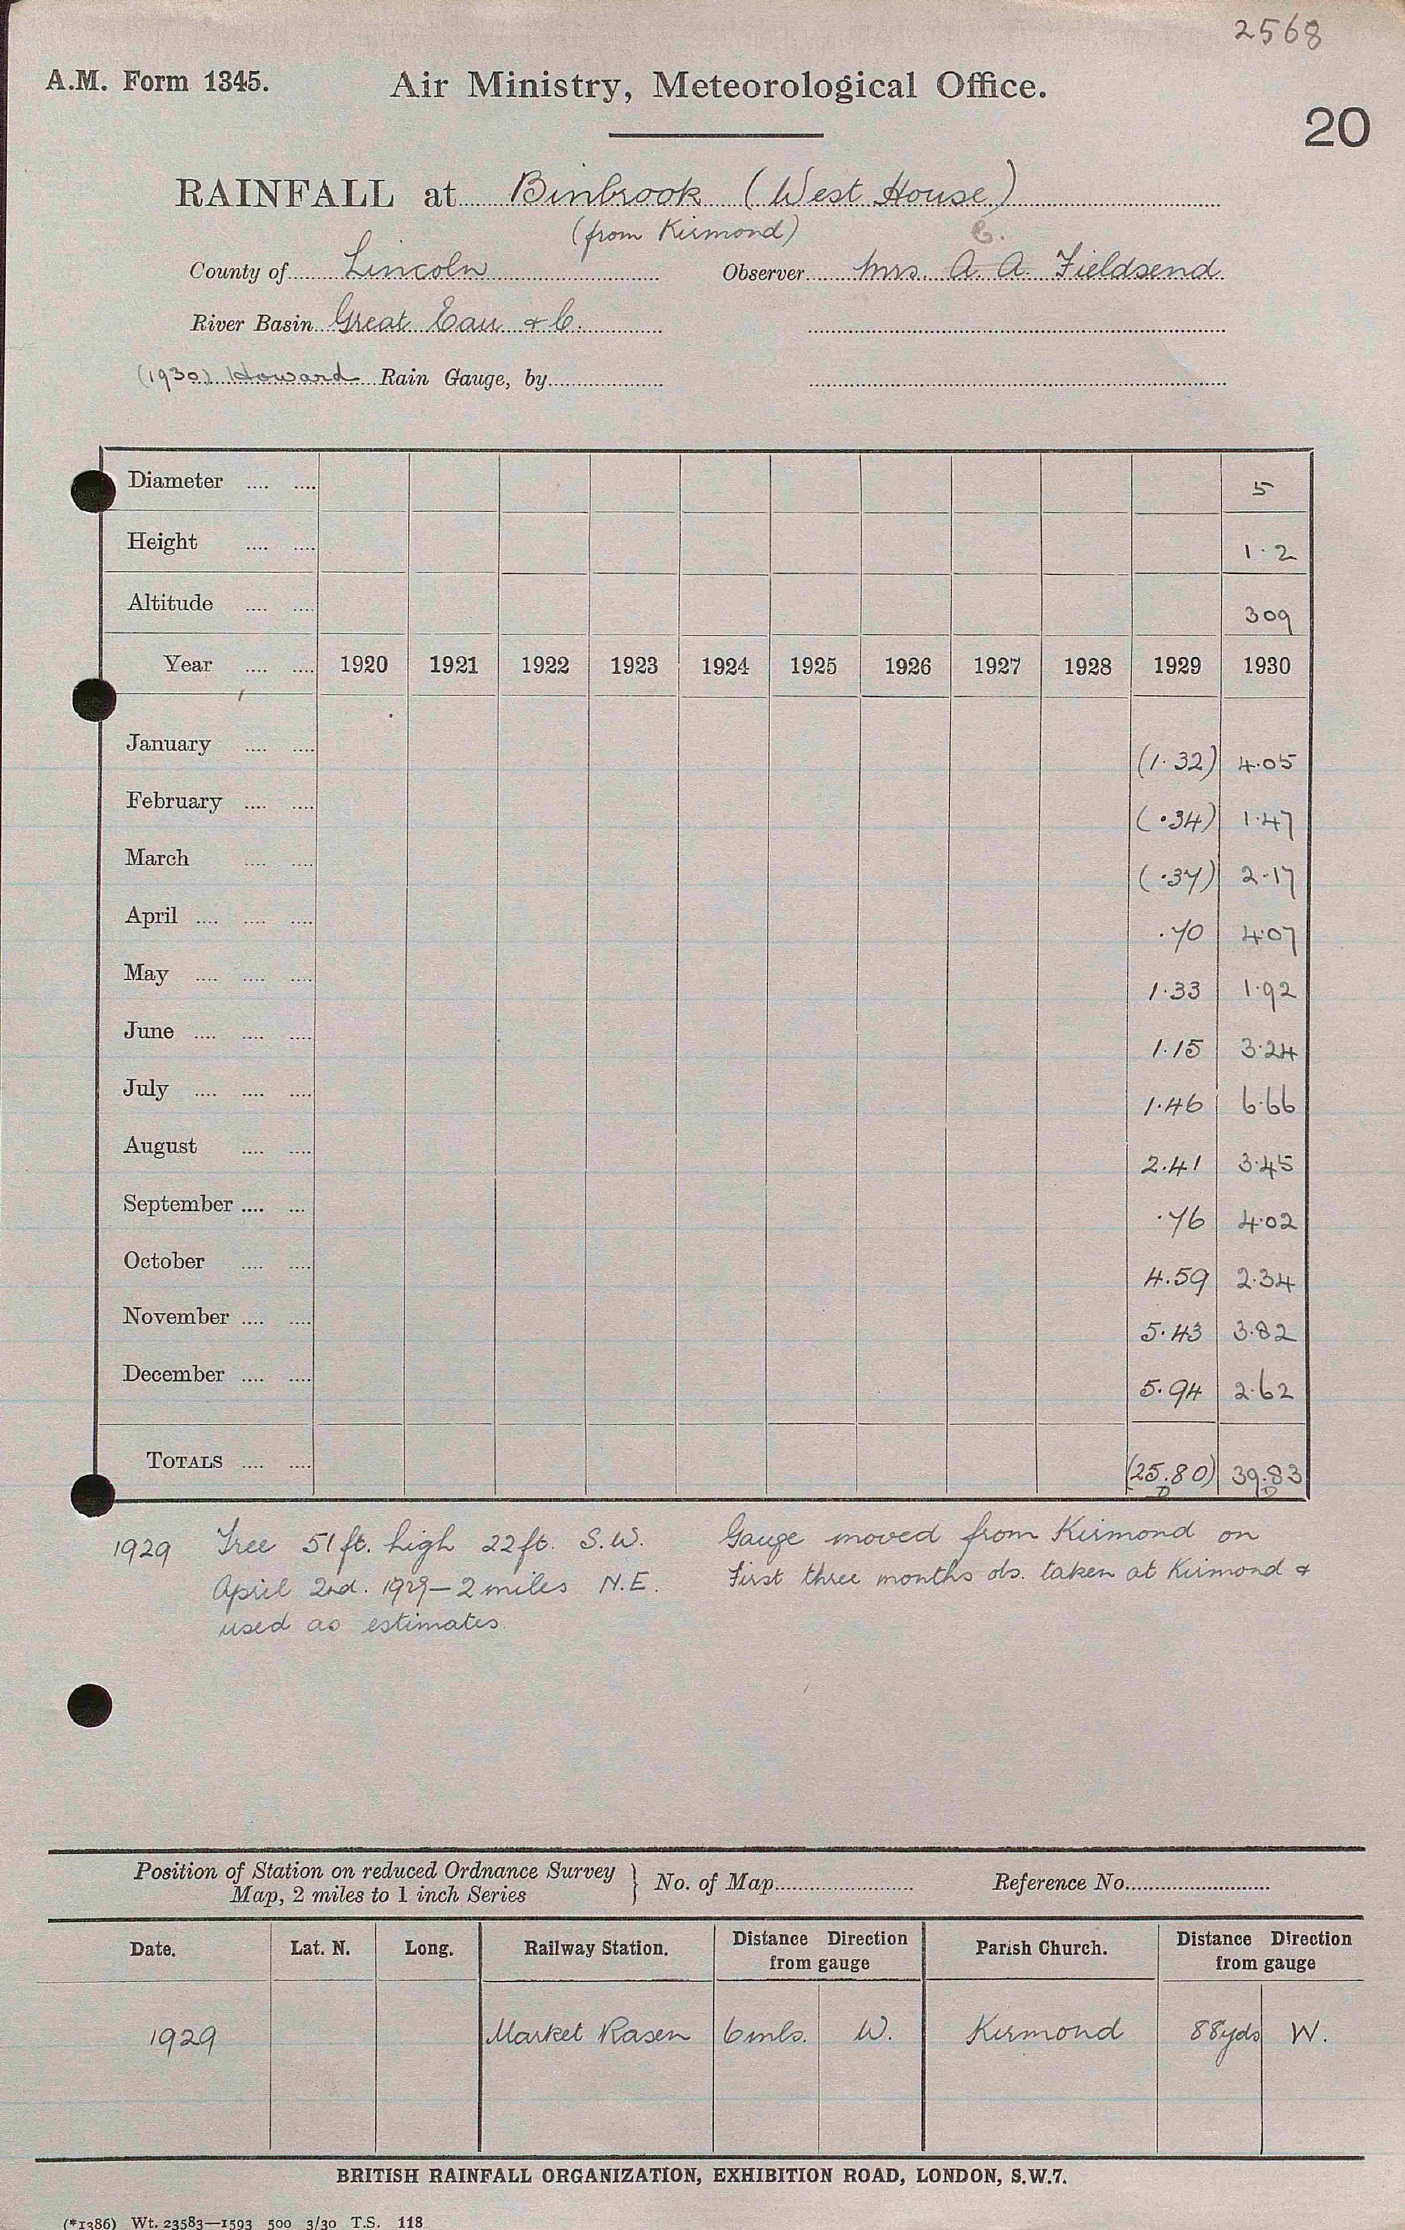 2568
A.M. Form 1345. Air Ministry, Meteorological Office.
20
RAINFALL at Binbrook (West House)
(from Kirmond)
C.
County of Lincoln Observer Mrs. A. A. Fieldsend
River Basin Great Eau & C.
(1930) Howard Rain Gauge, by
Diameter .... .... 5
Height .... .... 1.2
Altitude .... .... 309
Year .... .... 1920 1921 1922 1923 1924 1925 1926 1927 1928 1929 1930
January .... .... (1.32) 4.05
February .... .... (.34) 1.47
March .... .... (.37) 2.17
April .... .... .... .70 4.07
May .... .... .... 1.33 1.92
June .... .... .... 1.15 3.24
July .... .... .... 1.46 6.66
August .... .... 2.41 3.45
September .... ... .76 4.02
October .... .... 4.59 2.34
November .... .... 5.43 3.82
December .... .... 5.94 2.62
TOTALS .... .... (25.80) 39.83
D D
1929 Tree 51 ft. high 22 ft. S.W. Gauge moved from Kirmond on
April 2nd. 1929 – 2 miles N.E. First three months obs. taken at Kirmond &
used as estimates
Position of Station on reduced Ordnance Survey
Map, 2 miles to 1 inch Series } No. of Map Reference No.
Date. Lat. N. Long. Railway Station. Distance Direction from gauge Parish Church. Distance Direction from gauge
1929 Market Rasen 6 mls. W. Kirmond 88 yds W.
BRITISH RAINFALL ORGANIZATION, EXHIBITION ROAD, LONDON, S.W.7.
(*1386) Wt. 23583—1593 500 3/30 T.S. 118